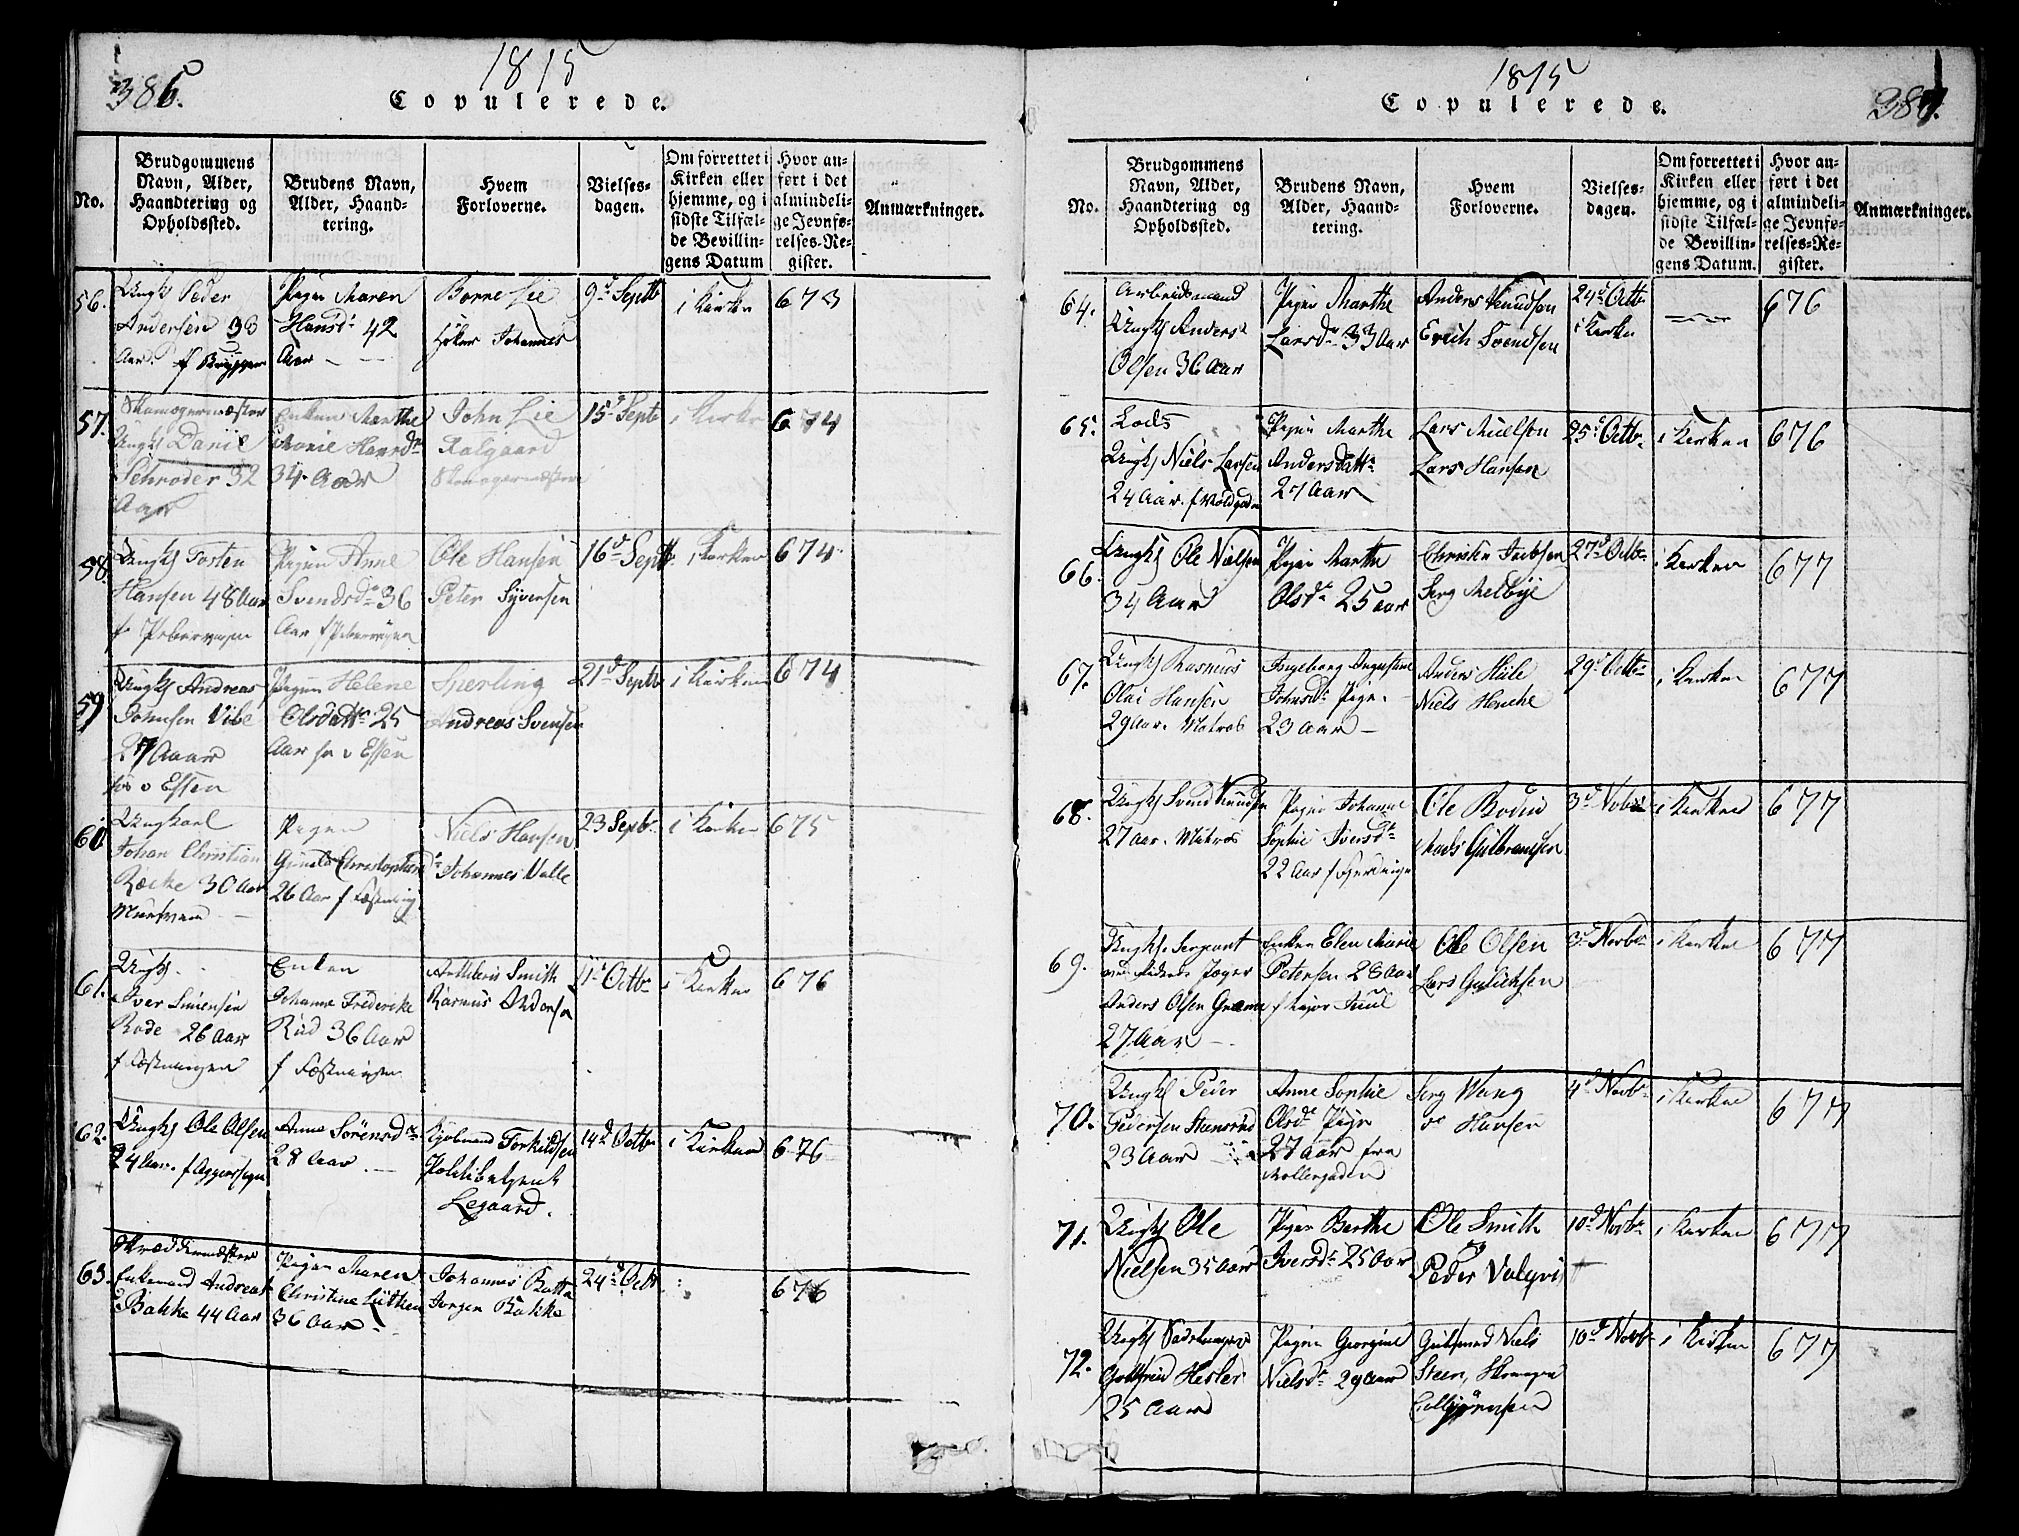 386.
1815
Copulerede.
No.
Brudgommens
Navn, Alder,
Haandtering og
Opholdssted.
Brudens Navn,
Alder, Haand-
tering.
Hvem
Forloverne.
Vielses-
dagen.
Om forrettet i
Kirken eller
hjemme, og i
sidste Tilfæl-
de Bevillin-
gens Datum
Hvor an-
ført i det
almindeli-
ge Jevnfø-
relses-Re-
gister.
Anmærkninger.
56.
Ungk Peder
Andersen 38
Aar.
Pigen Maren
Hansd 42
Aar
Borre Lie
Høker Johannes
9d Septb
i Kirken
673
57.
Skomagermester
Ungk Daniel
Schrøder 32
Aar
Enken Marthe
Marie Hansd
34 Aar
John Lie
Aalgaard
Skomagermester
15d Septb
i Kirke
674
58.
Ungk Tosten
Hansen 48 Aar
f. Pibervigen
Pigen Anne
Svendsd 36
Aar f Pibervigen
Ole Hansen
Peter Syversen
16d Septb.
i Kirken
674
59
Ungk Andreas
Johnsen Vibe
27 Aar
hos v Essen
Pigen Helene
Olsdattr 25
Aar hos v Essen
Sperling
Andreas Svensen
21d Septb
i Kirken
674
60
Ungkarl
Johan Christian
30 Aar
Pigen
Christophersd
26 Aar f Fæstning
Niels Hansen
Johannes Valle
23 Septb.
i Kirken
675
61.
Ungk.
Iver Simensen
Rode 26 Aar
f Fæstningen
Enken
Johanne Frederike
Rud 36 Aar
f Fæstningen
Smith
Rasmus Andersen
11d Octbr
i Kirken
676
62.
Ungk Ole Olsen
24 Aar.
Anne Sørensdr
28 Aar.
Torkildsen
Politibetjent
Legaard.
14d Octb
i Kirken
676
63.
Skræddermester
Enkemand Andreas
Bakke 44 Aar
Pigen Maren
Christine Lütken
36 Aar
Johannes
Jørgen Bakke
24d Octb
676
1815
Copulerede.
387.
No.
Brudgommens
Navn, Alder,
Haandtering og
Opholdssted.
Brudens Navn,
Alder, Haand-
tering.
Hvem
Forloverne.
Vielses-
dagen.
Om forrettet i
Kirken eller
hjemme, og i
sidste Tilfæl-
de Bevillin-
gens Datum.
Hvor an-
ført i det
almindeli-
ge Jevnfø-
relses-Re-
gister.
Anmærkninger.
64.
Arbeidsmand
Ungk Anders
Olsen 36 Aar
Pigen Marthe
Larsdr 33 Aar
Anders Knudsen
Erich Svendsen
24d Octb
i Kirken
676
65.
Lods
Ungk Niels Larsen
24 Aar. f Voldgaden
Pigen Marthe
Andersdattr
27 Aar
Lars Nielsen
Lars Hansen
25d Octbr
i Kirken
676
66.
Ungk Ole Nielsen
34 Aar
Pigen Marthe
Olsdr 25 aar
Christen Jacobsen
Serg Melbye
27d Octbr
i Kirken
677
67.
Ungk Rasmus
Olai Hansen
29 Aar. Matros
Ingeborg Augustine
Johnsdr Pige
23 aar
Anders
Niels
29d Octbr
i Kirken
677
68.
Ungk Svend Knudsen
27 Aar. Matros
Pigen Johanne
Sophie Iversdr
22 Aar
Ole Bodin
Mads Gulbransen
3d Novbr
i Kirken
677
69.
Ungk. Sergeant
Jæger
Anders Olsen
27 Aar
Enken Elen Marie
Petersen 28 aar
f Major Juul
Ole Olsen
Lars Gulichsen
3d Novbr
i Kirken
677
70.
Ungk Peder
Pedersen
23 Aar
Anne Sophie
Olsdr Pige
27 Aar fra
Møllergaden
Serg Wang
Hansen
4d Novbr
i Kirken
677
71.
Ungk Ole
Nielsen 35 Aar
Pigen Berthe
Iversdr 25 Aar
Ole Smith
Peder
10d Novbr
i Kirken
677
72.
Ungk
Gottfried Hesler
25 Aar
Pigen Georgine
Nielsdr 29 Aar
Niels
Steen,
10d Novbr
i Kirken
677